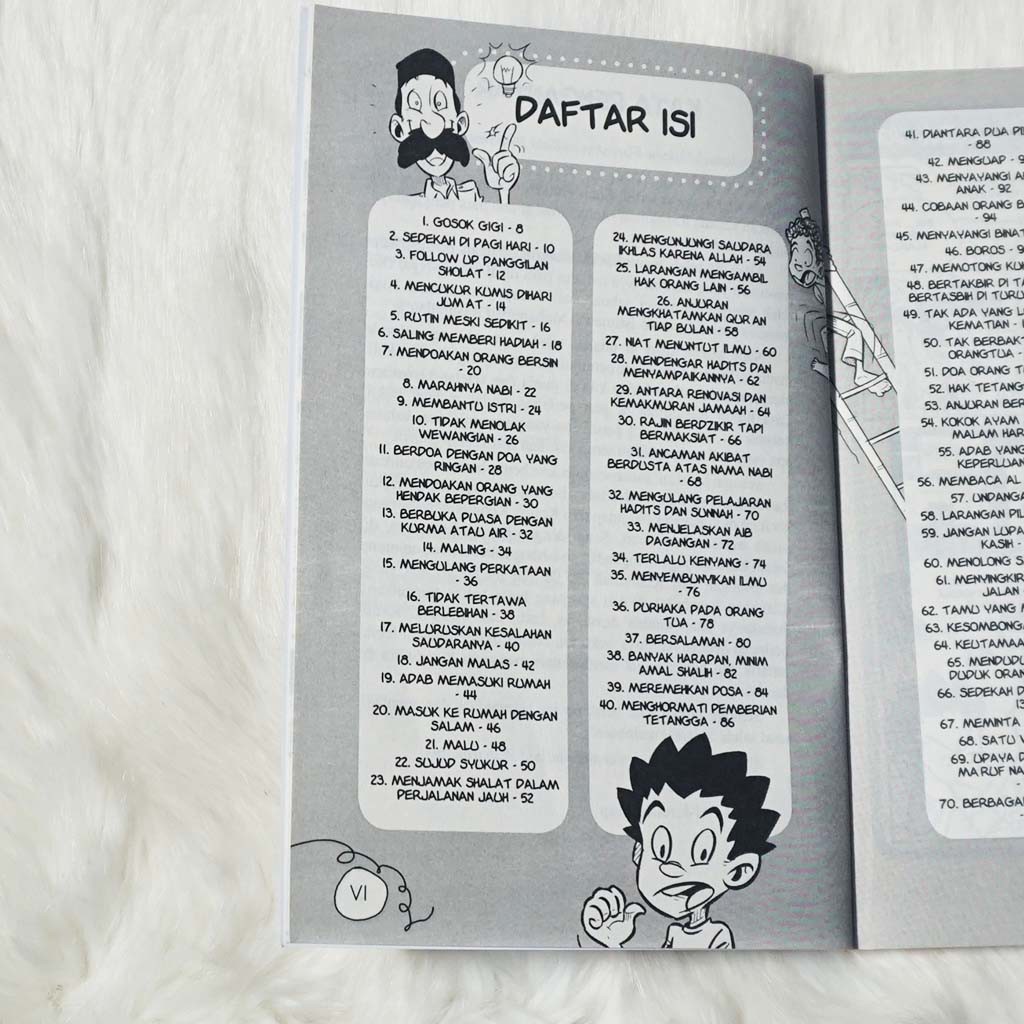 DAFTAR ISI
1. GOSOK GIGI - 8
2. SEDEKAH DI PAGI HARI - 10
3. FOLLOW UP PANGGILAN
SHOLAT - 12
4. MENCUKUR KUMIS DIHARI
JUM'AT - 14
5. RUTIN MESKI SEDIKIT - 16
6. SALING MEMBERI HADIAH - 18
7. MENDOAKAN ORANG BERSIN
- 20
8. MARAHNYA NABI - 22
9. MEMBANTU ISTRI - 24
10. TIDAK MENOLAK
WEWANGIAN - 26
11. BERDOA DENGAN DOA YANG
RINGAN - 28
12. MENDOAKAN ORANG YANG
HENDAK BEPERGIAN - 30
13. BERBUKA PUASA DENGAN
KURMA ATAU AIR - 32
14. MALING - 34
15. MENGULANG PERKATAAN
- 36
16. TIDAK TERTAWA
BERLEBIHAN - 38
17. MELURUSKAN KESALAHAN
SAUDARANYA - 40
18. JANGAN MALAS - 42
19. ADAB MEMASUKI RUMAH
- 44
20. MASUK KE RUMAH DENGAN
SALAM - 46
21. MALU - 48
22. SUJUD SYUKUR - 50
23. MENJAMAK SHALAT DALAM
PERJALANAN JAUH - 52
24. MENGUNJUNGI SAUDARA
IKHLAS KARENA ALLAH - 54
25. LARANGAN MENGAMBIL
HAK ORANG LAIN - 56
26. ANJURAN
MENGKHATAMKAN QUR'AN
TIAP BULAN - 58
27. NIAT MENUNTUT ILMU - 60
28. MENDENGAR HADITS DAN
MENYAMPAIKANNYA - 62
29. ANTARA RENOVASI DAN
KEMAKMURAN JAMAAH - 64
30. RAJIN BERDZIKIR TAPI
BERMAKSIAT - 66
31. ANCAMAN AKIBAT
BERDUSTA ATAS NAMA NABI
- 68
32. MENGULANG PELAJARAN
HADITS DAN SUNNAH - 70
33. MENJELASKAN AIB
DAGANGAN - 72
34. TERLALU KENYANG - 74
35. MENYEMBUNYIKAN ILMU
- 76
36. DURHAKA PADA ORANG
TUA - 78
37. BERSALAMAN - 80
38. BANYAK HARAPAN, MINIM
AMAL SHALIH - 82
39. MEREMEHKAN DOSA - 84
40. MENGHORMATI PEMBERIAN
TETANGGA - 86
VI
41. DIANTARA DUA
- 88
42. MENGUAP -
43. MENYAYANGI
ANAK - 92
44. COBAAN ORANG
- 94
45. MENYAYANGI
46. BOROS -
47. MEMOTONG
48. BERTAKBIR DI
BERTASBIH DI
49. TAK ADA YANG
KEMATIAN -
50. TAK
ORANGTUA -
51. DOA ORANG
52. HAK
53. ANJURAN
54. KOKOK AYAM
MALAM
55. ADAB YANG
KEPERLUAN
56. MEMBACA AL
57.
58. LARANGAN
59. JANGAN LUPA
KASIH -
60. MENOLONG
61.
JALAN
62. TAMU YANG
63.
64.
65.
DUDUK
66. SEDEKAH
67. MEMINTA
68. SATU
69. UPAYA
MA'RUF
70.